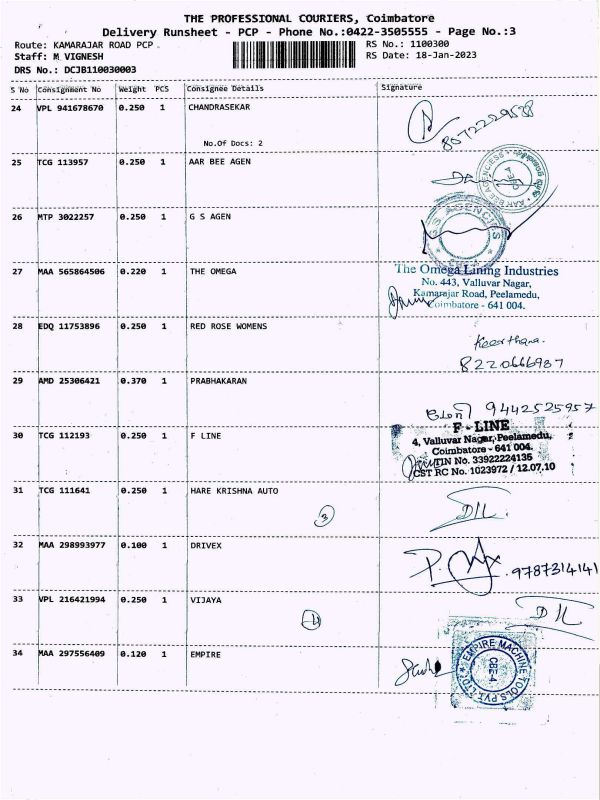 THE PROFESSIONAL COURIERS, Coimbatore
Delivery Runsheet - PCP - Phone No.:0422-3505555 - Page No.:3
Route: KAMARAJAR ROAD PCP
RS No.: 1100300
Staff: M VIGNESH
RS Date: 18-Jan-2023
DRS No.: DCJB110030003
S No Consignment No Weight PCS Consignee Details Signature
24 VPL 941678670 0.250 1 CHANDRASEKAR
8072229538
No.Of Docs: 2
25 TCG 113957 0.250 1 AAR BEE AGEN
CBE-4
26 MTP 3022257 0.250 1 G S AGEN
AGENCIES
27 MAA 565864506 0.220 1 THE OMEGA
The Omega Lining Industries
No. 443, Valluvar Nagar,
Kamarajar Road, Peelamedu,
Coimbatore - 641 004.
28 EDQ 11753896 0.250 1 RED ROSE WOMENS
Keerthana.
8220666987
29 AMD 25306421 0.370 1 PRABHAKARAN
9442525957
30 TCG 112193 0.250 1 F LINE
F - LINE
4, Valluvar Nagar, Peelamedu,
Coimbatore - 641 004.
TIN No. 33922224135
CST RC No. 1023972 / 12.07.10
31 TCG 111641 0.250 1 HARE KRISHNA AUTO
3
32 MAA 298993977 0.100 1 DRIVEX
9787314141
33 VPL 216421994 0.250 1 VIJAYA
34 MAA 297556409 0.120 1 EMPIRE
EMPIRE MACHINE TOOLS PVT. LTD.
CBE-4